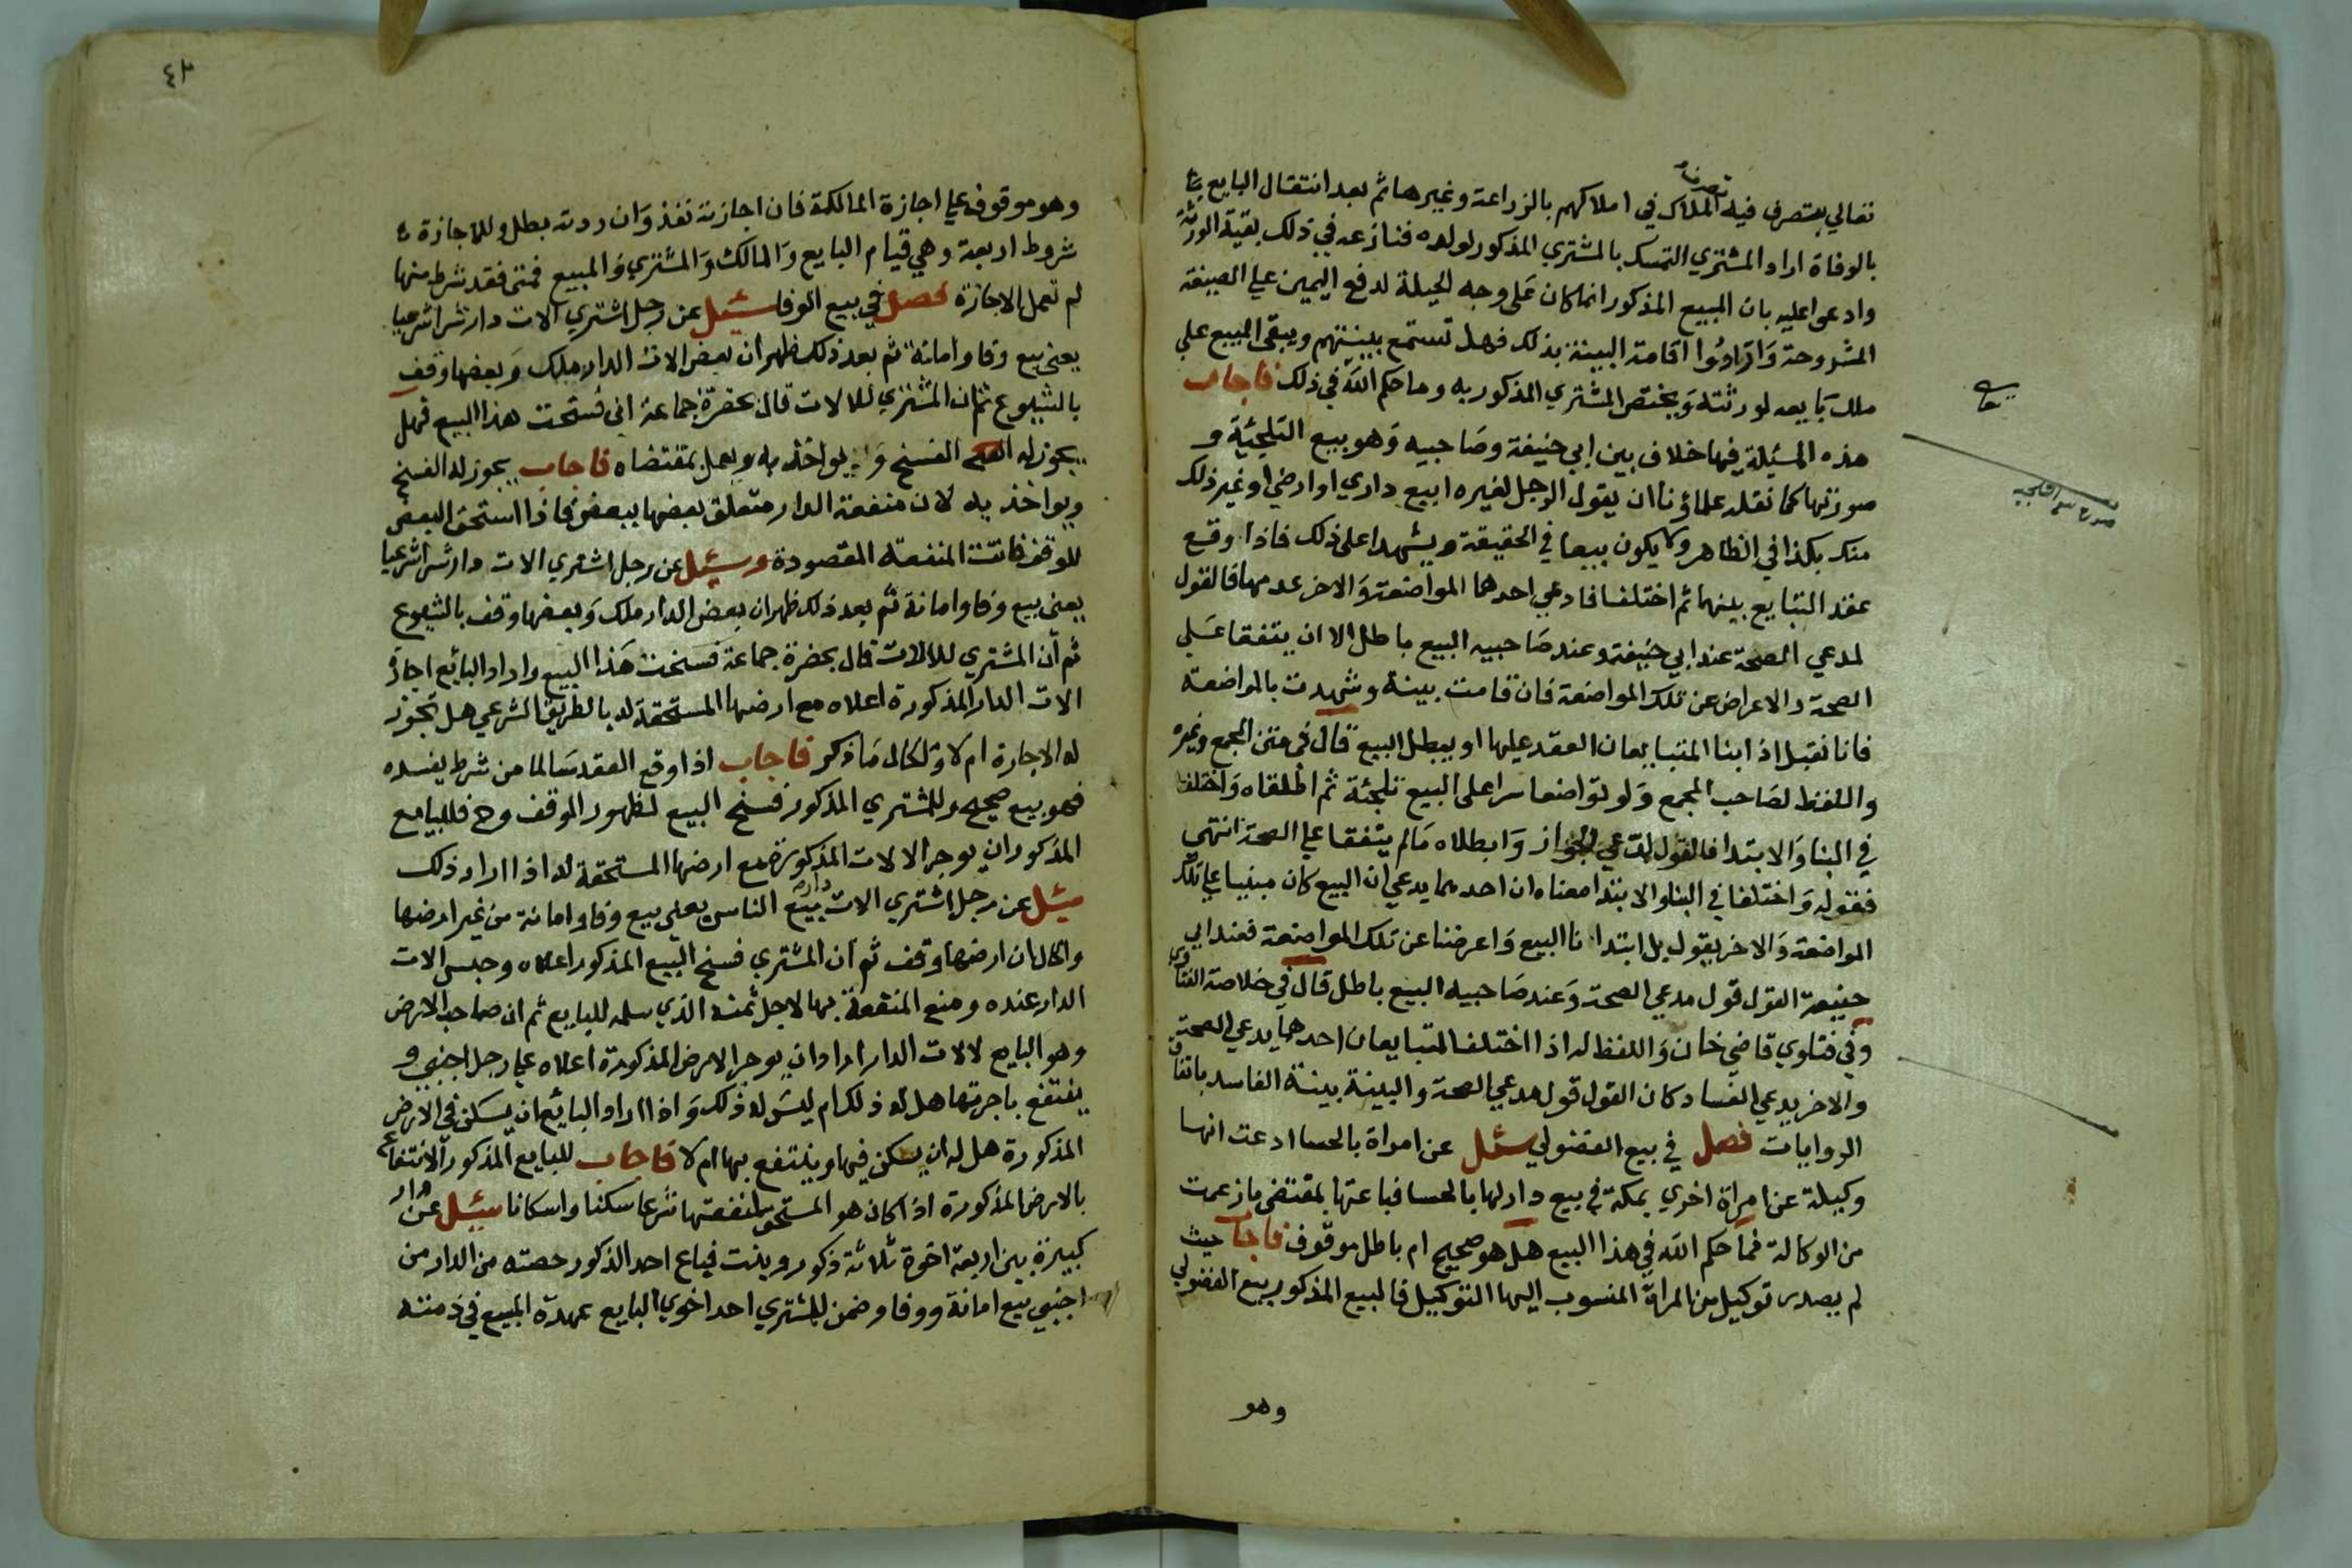 تصرف
تعالي يتصرف فيه الملاك في املاكهم بالزراعة وغيرها ثم بعد انتقال البايع
بالوفاة اراد المشتري التمسك بالمشتري المذكور لولده فنازعه في ذلك بقية الورثة
وادعوا عليه بان المبيع المذكور انما كان على وجه الحيلة لدفع اليمين علي الصيغة
المشروحة وارادوا اقامة البينة بذلك فهل تستمع بينتهم ويبقى المبيع علي
ملك بايعه لورثته ويختص المشتري المذكور به وما حكم الله في ذلك فاجاب
هذه المسئلة فيها خلاف بين ابي حنيفة وصاحبيه وهو بيع التلجئية و
صورتها كما نقله علماؤنا ان يقول الرجل لغيره ابيع داري او ارضي او غير ذلك
منك بكذا في الظاهر ولا يكون بيعا في الحقيقة ويشهدا على ذلك فاذا وقع
عقد التبايع بينهما ثم اختلفا فادعي احدهما المواضعة والاخر عدمها فالقول
لمدعي الصحة عند ابي حنيفة وعند صاحبيه البيع باطل الا ان يتفقا على
الصحة والاعراض عن تلك المواضعة فان قامت بينة وشهدت بالمواضعة
فانا نقبل اذ ابنا المتبايعان العقد عليها او يبطل البيع قال في متن المجمع وغيره
واللفظ لصاحب المجمع ولو تواضعا سرا على البيع تلجئة ثم اطلقاه واختلفا
في البنا والابتدا فالقول لمدعي الجواز وابطلاه مالم يتفقا علي الصحة انتهي
فقوله واختلفا في البنا والابتدا معناه ان احدهما يدعي ان البيع كان مبنيا علي تلك
المواضعة والاخر يقول بل ابتدانا البيع واعرضنا عن تلك المواضعة فعند ابي
حنيفة القول قول مدعي الصحة وعند صاحبيه البيع باطل قال في خلاصة الفتاوي
وفي فتاوي قاضي خان واللفظ له اذا اختلف المتبايعان احدهما يدعي الصحة
والاخر يدعي الفساد كان القول قول مدعي الصحة والبينة بينة الفاسد باتفاق
الروايات فصل في بيع الفضولي سئل عن امراة بالحسا ادعت انها
وكيلة عن امراة اخري بمكة في بيع دار لها بالحسا فباعتها بمقتضى ما زعمت
من الوكالة فما حكم الله في هذا البيع هل هو صحيح ام باطل موقوف فاجاب حيث
لم يصدر توكيل من المراة المنسوب اليها التوكيل فالبيع المذكور بيع الفضولي
وهو
٤٢
وهو موقوف علي اجازة المالكة فان اجازته نفذ وان ردته بطل وللاجازة
شروط اربعة وهي قيام البايع والمالك والمشتري والمبيع فمتى فقد شرط منها
لم تعمل الاجازة فصل في بيع الوفا سئيل عن رجل اشتري الات دار شرا شرعيا
يعني بيع وفا وامانة ثم بعد ذلك ظهر ان بعض الات الدار ملك وبعضها وقف
بالشيوع ثم ان المشتري للالات قال بحضرة جماعة اني فسخت هذا البيع فهل
يجوز له الفسخ ويواخذ به ويعمل بمقتضاه فاجاب يجوز له الفسخ
ويواخذ به لان منفعة الدار متعلق بعضها ببعض فاذا استحق البعض
للوقف فاتت المنفعة المقصودة وسئيل عن رجل اشتري الات دار شرا شرعيا
يعني بيع وفا وامانة ثم بعد ذلك ظهر ان بعض الدار ملك وبعضها وقف بالشيوع
ثم ان المشتري للالات قال بحضرة جماعة فسخت هذا البيع واراد البائع اجارة
الات الدار المذكورة اعلاه مع ارضها المستحقة له بالطريق الشرعي هل تجوز
له الاجارة ام لا والحال ما ذكر فاجاب اذا وقع العقد سالما من شرط يفسده
فهو بيع صحيح وللمشتري المذكور فسخ البيع لظهور الوقف وح فللبايع
المذكور ان يوجر الالات المذكورة مع ارضها المستحقة له اذا اراد ذلك
سئيل عن رجل اشتري الات دار بيع الناس يعني بيع وفا وامانة من غير ارضها
والحال ان ارضها وقف ثم ان المشتري فسخ البيع المذكور اعلاه وحبس الات
الدار عنده ومنع المنفعة بها لاجل ثمنه الذي سلمه للبايع ثم ان صاحب الارض
وهو البايع لالات الدار اراد ان يوجر الارض المذكورة اعلاه علي رجل اجنبي و
ينتفع باجرتها هل له ذلك ام ليس له ذلك واذا اراد البائع ان يسكن في الارض
المذكورة هل له ان يسكن فيها وينتفع بها ام لا فاجاب للبايع المذكور الانتفاع
بالارض المذكورة اذا كان هو المستحق لمنفعتها شرعا سكنا واسكانا سئيل عن دار
كبيرة بين اربعة اخوة ثلاثة ذكور وبنت فباع احد الذكور حصته من الدار من
اجنبي بيع امانة ووفا وضمن للمشتري احد اخوي البايع عهدة المبيع في ذمته